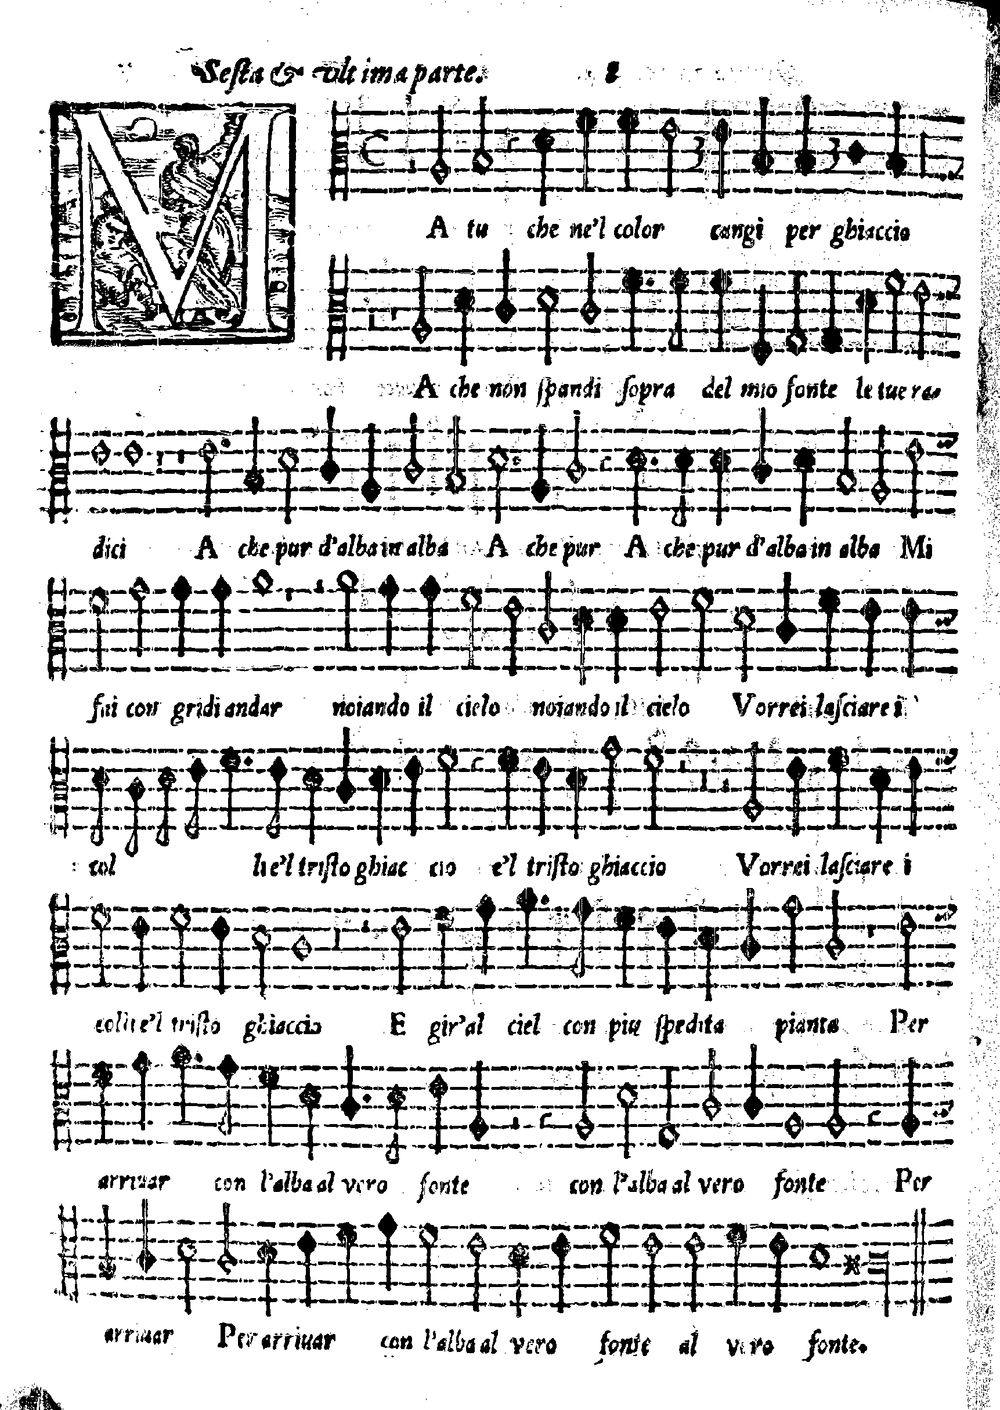 Sesta & vltima parte. 2
M
A tu che ne'l color cangi per ghiaccio
A che non spandi sopra del mio fonte le tue ra-
dici A che pur d'alba in alba A che pur A che pur d'alba in alba Mi
fai con gridi andar noiando il cielo noiando il cielo Vorrei lasciare i
col li e'l tristo ghiac cio e'l tristo ghiaccio Vorrei lasciare i
colli e'l tristo ghiaccio E gir'al ciel con piu spedita pianta Per
arriuar con l'alba al vero fonte con l'alba al vero fonte Per
arriuar Per arriuar con l'alba al vero fonte al vero fonte.